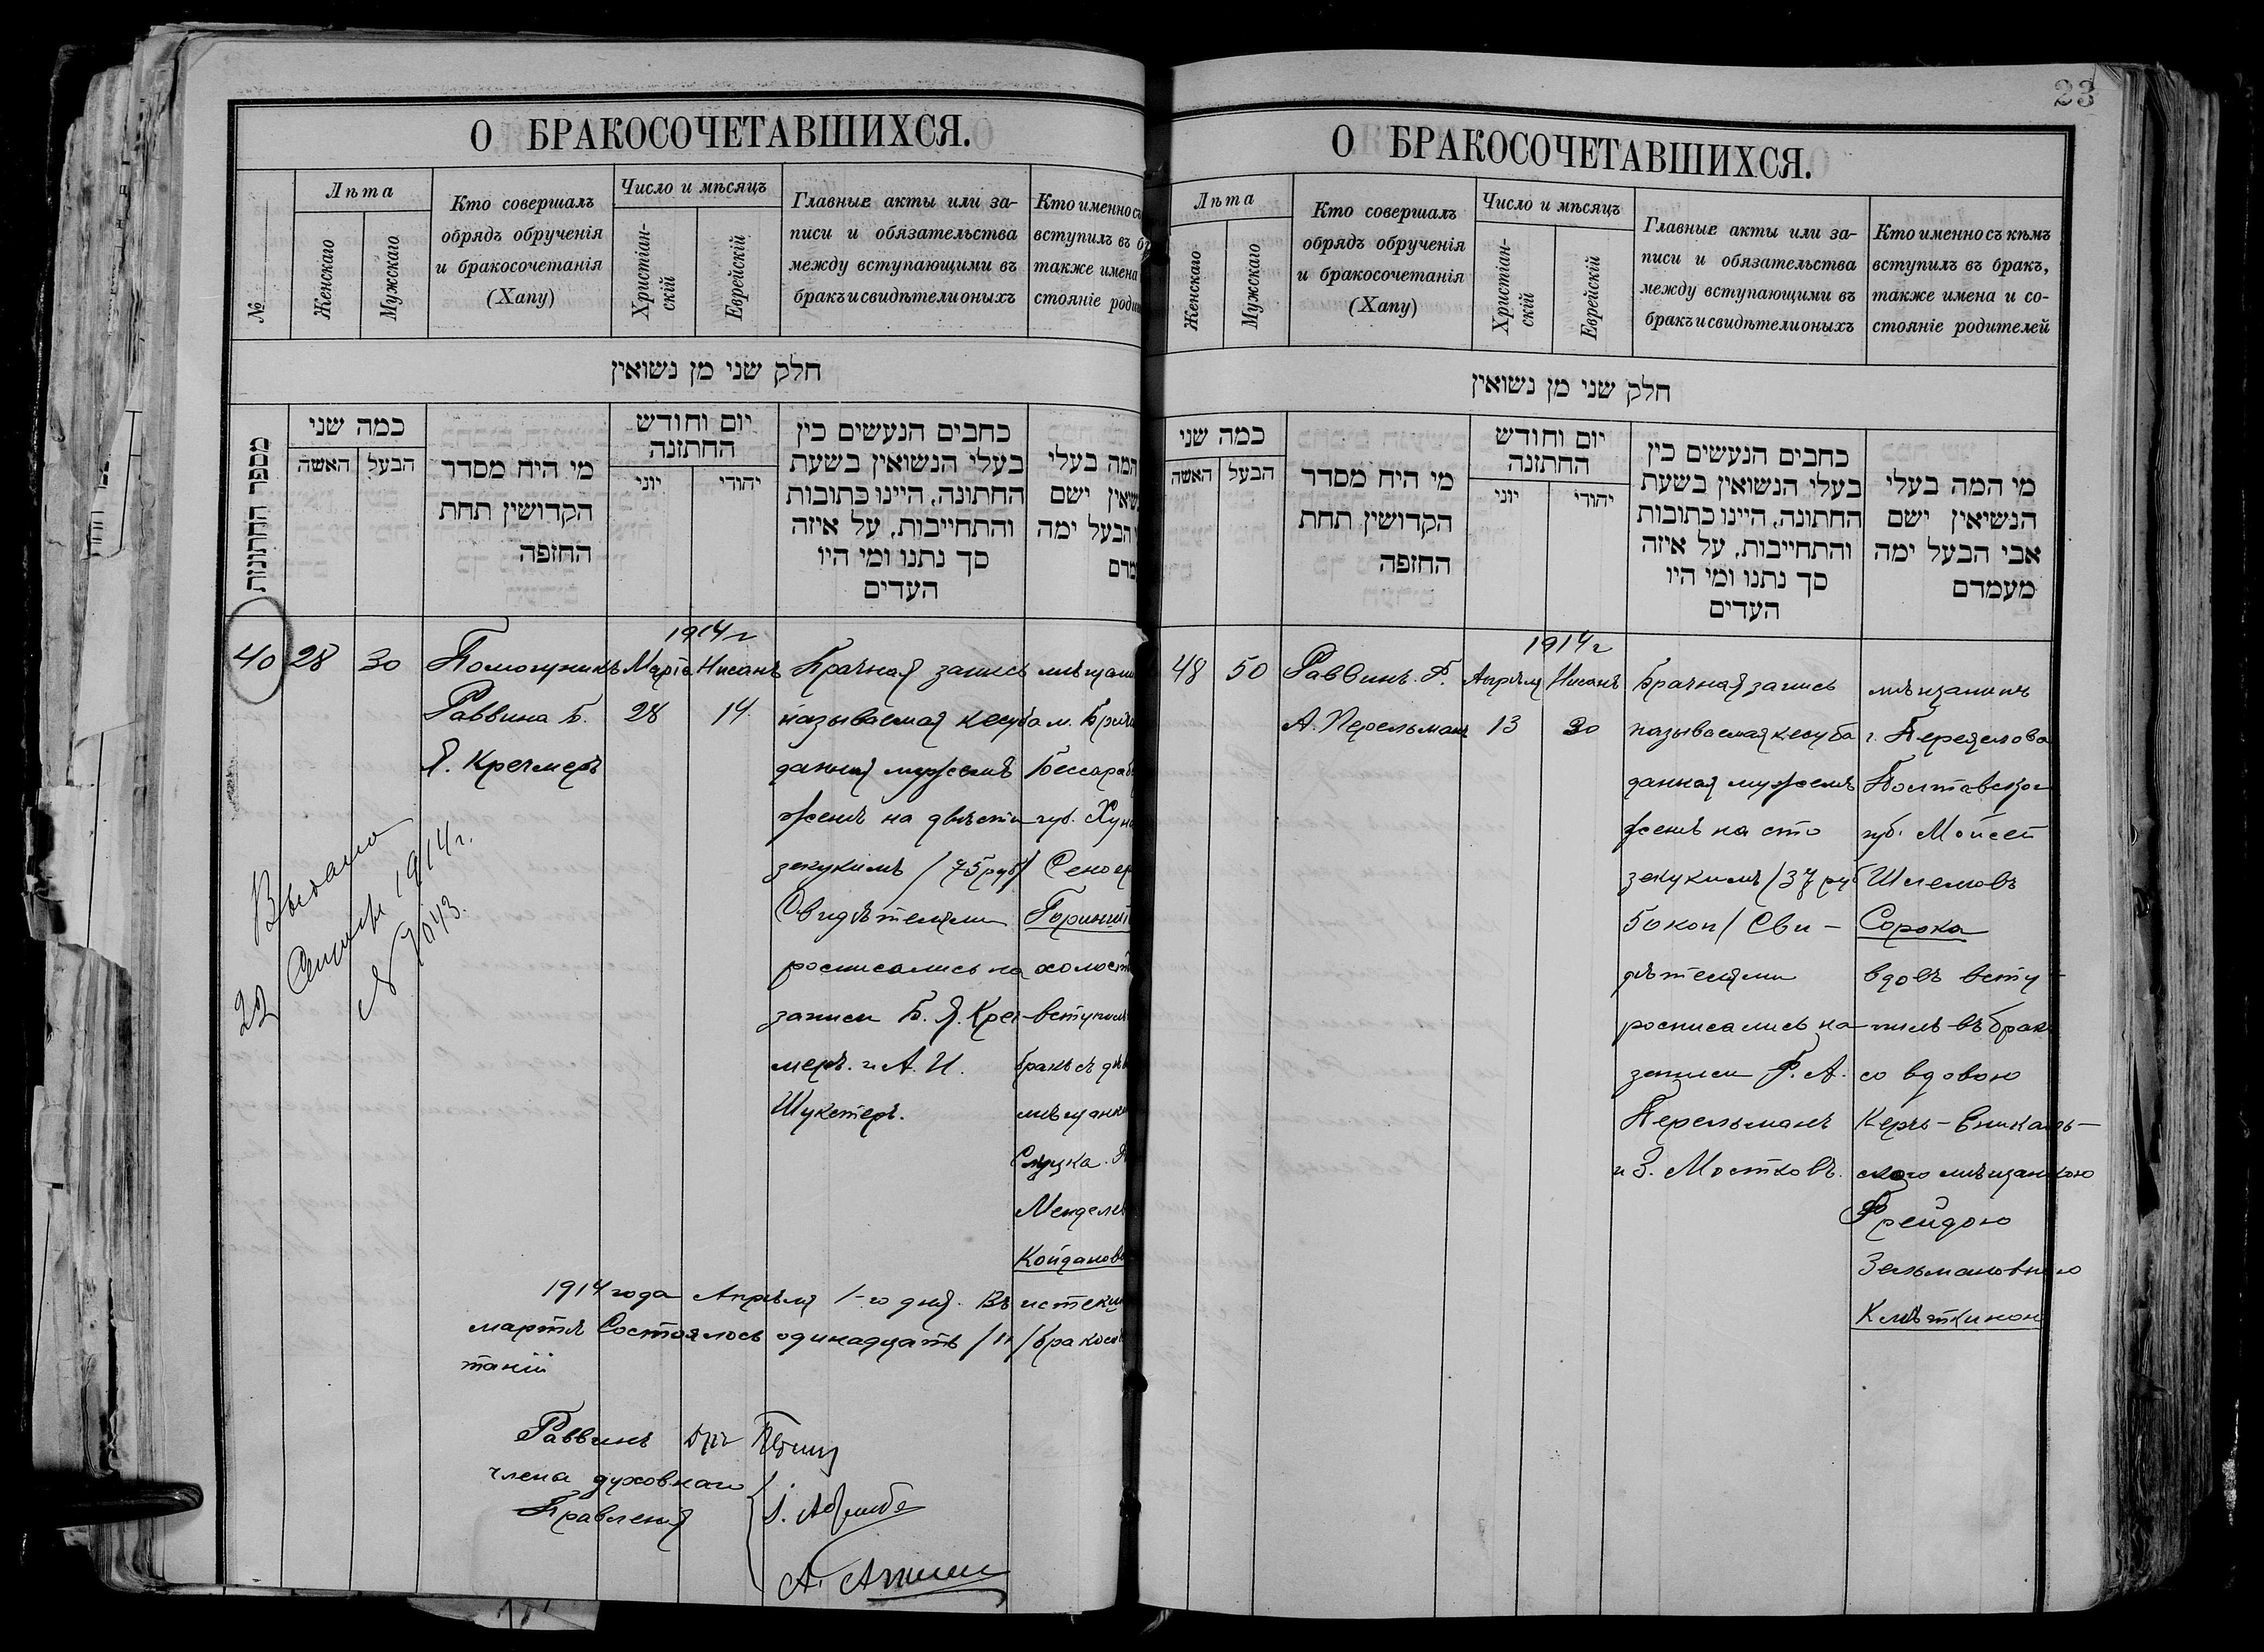 О БРАКОСОЧЕТАВШИХСЯ.
№
Лѣта
Женскаго
Мужскаго
Кто совершалъ
обрядъ обрученія
и бракосочетанія
(Хапу)
Число и мѣсяцъ
Христіан-
скій
Еврейскій
Главные акты или за-
писи и обязательства
между вступающими въ
бракъ и свидѣтели оныхъ
Кто именно съ
вступилъ въ бр
также имена
стояніе роди
חלק שני מן נשואין
מספר החתונות
כמה שני
האשה
הבעל
מי היח מסדר
הקדושין תחת
החופה
יום וחודש
החתונה
יוני
יהודי
כחבים הנעשים כין
בעלי הנשואין בשעת
החתונה, היינו כתובות
והתחייבות, על איזה
סך נתנו ומי היו
העדים
המה בעלי
ישם
הבעל ימה
40
28
30
Помощникъ
Раввина Б.
Я. Кречмеръ
1914 г
Марта
28
Нисанъ
14
Брачная запись
называемая кесуба
данная мужемъ
женѣ на двѣсти
зекукимъ /75 руб/
Свидѣтелями
росписались на
записи Б. Я. Креч-
меръ и А. И.
Шукстеръ.
мѣщани
м. Бричи
Бессараб
губ. Хун
холост
вступилъ
бракъ съ дѣ
мѣщанк
Слуцка
Мендел
Койданов
Выдано
22
1914 г.
№ 7043.
1914 года Апрѣля 1-го дня. Въ истекш
мартѣ состоялось одинадцать /11/ бракосоч
таній
Раввинъ
члена духовнаго
Правленія
23
О БРАКОСОЧЕТАВШИХСЯ.
Лѣта
Женскаго
Мужскаго
Кто совершалъ
обрядъ обрученія
и бракосочетанія
(Хапу)
Число и мѣсяцъ
Христіан-
скій
Еврейскій
Главные акты или за-
писи и обязательства
между вступающими въ
бракъ и свидѣтели оныхъ
Кто именно съ кѣмъ
вступилъ въ бракъ,
также имена и со-
стояніе родителей
חלק שני מן נשואין
כמה שני
האשה
הבעל
מי היח מסדר
הקדושין תחת
החופה
יום וחודש
החתונה
יוני
יהודי
כחבים הנעשים כין
בעלי הנשואין בשעת
החתונה, היינו כתובות
והתחייבות, על איזה
סך נתנו ומי היו
העדים
מי המה בעלי
הנשיאין ישם
אבי הבעל ימה
מעמדם
48
50
Раввинъ. Ф.
А. Перельманъ
1914 г
Апрѣля
13
Нисанъ
30
Брачная запись
называемая кесуба
данная мужемъ
женѣ на сто
зекукимъ /37 руб
50 коп/ Сви-
дѣтелями
росписались на
записи Ф. А.
Перельманъ
и З. Мостковъ.
мѣщанинъ
г. Переяслова
Полтавской
губ. Мойсей
Шлемовъ
Сорока
вдовъ всту-
пилъ въ бракъ
со вдовою
Керчь-Еникаль-
скою мѣщанкою
Фрейдою
Зельмановною
Клѣткиною